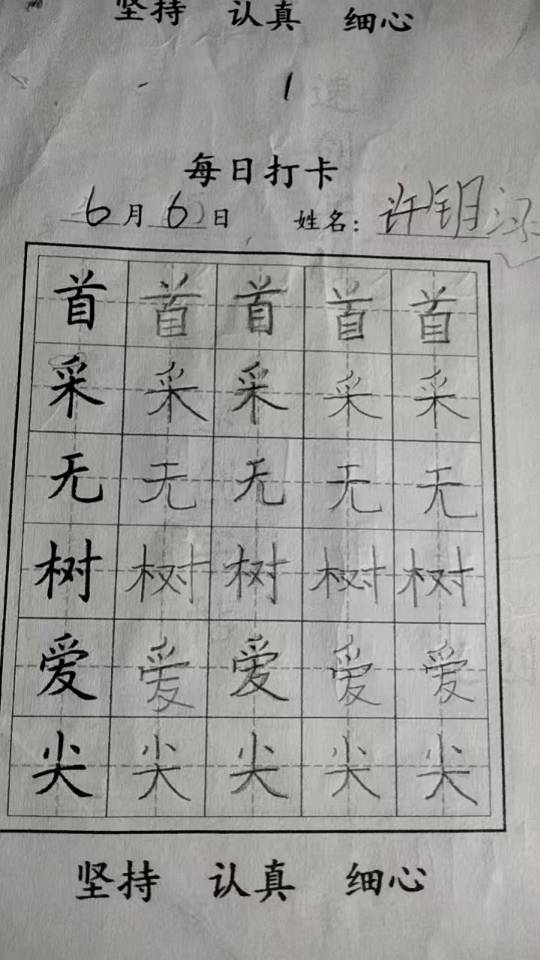 坚持 认真 细心
1
每日打卡
6月6日 姓名：许钥
首 首 首 首 首
采 采 采 采 采
无 无 无 无 无
树 树 树 树 树
爱 爱 爱 爱 爱
尖 尖 尖 尖 尖
坚持 认真 细心